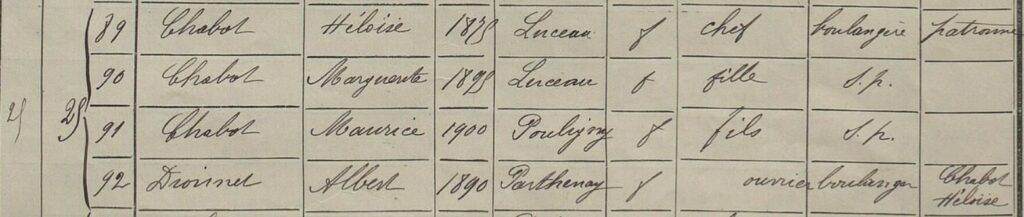 89 Chabot Héloïse 1875 Luceau f chef boulangère patronne
90 Chabot Marguerite 1895 Luceau f fille s.p.
25 25 91 Chabot Maurice 1900 Pouligny f fils s.p.
92 Albert 1890 Parthenay f ouvrier boulanger Chabot
Héloïse